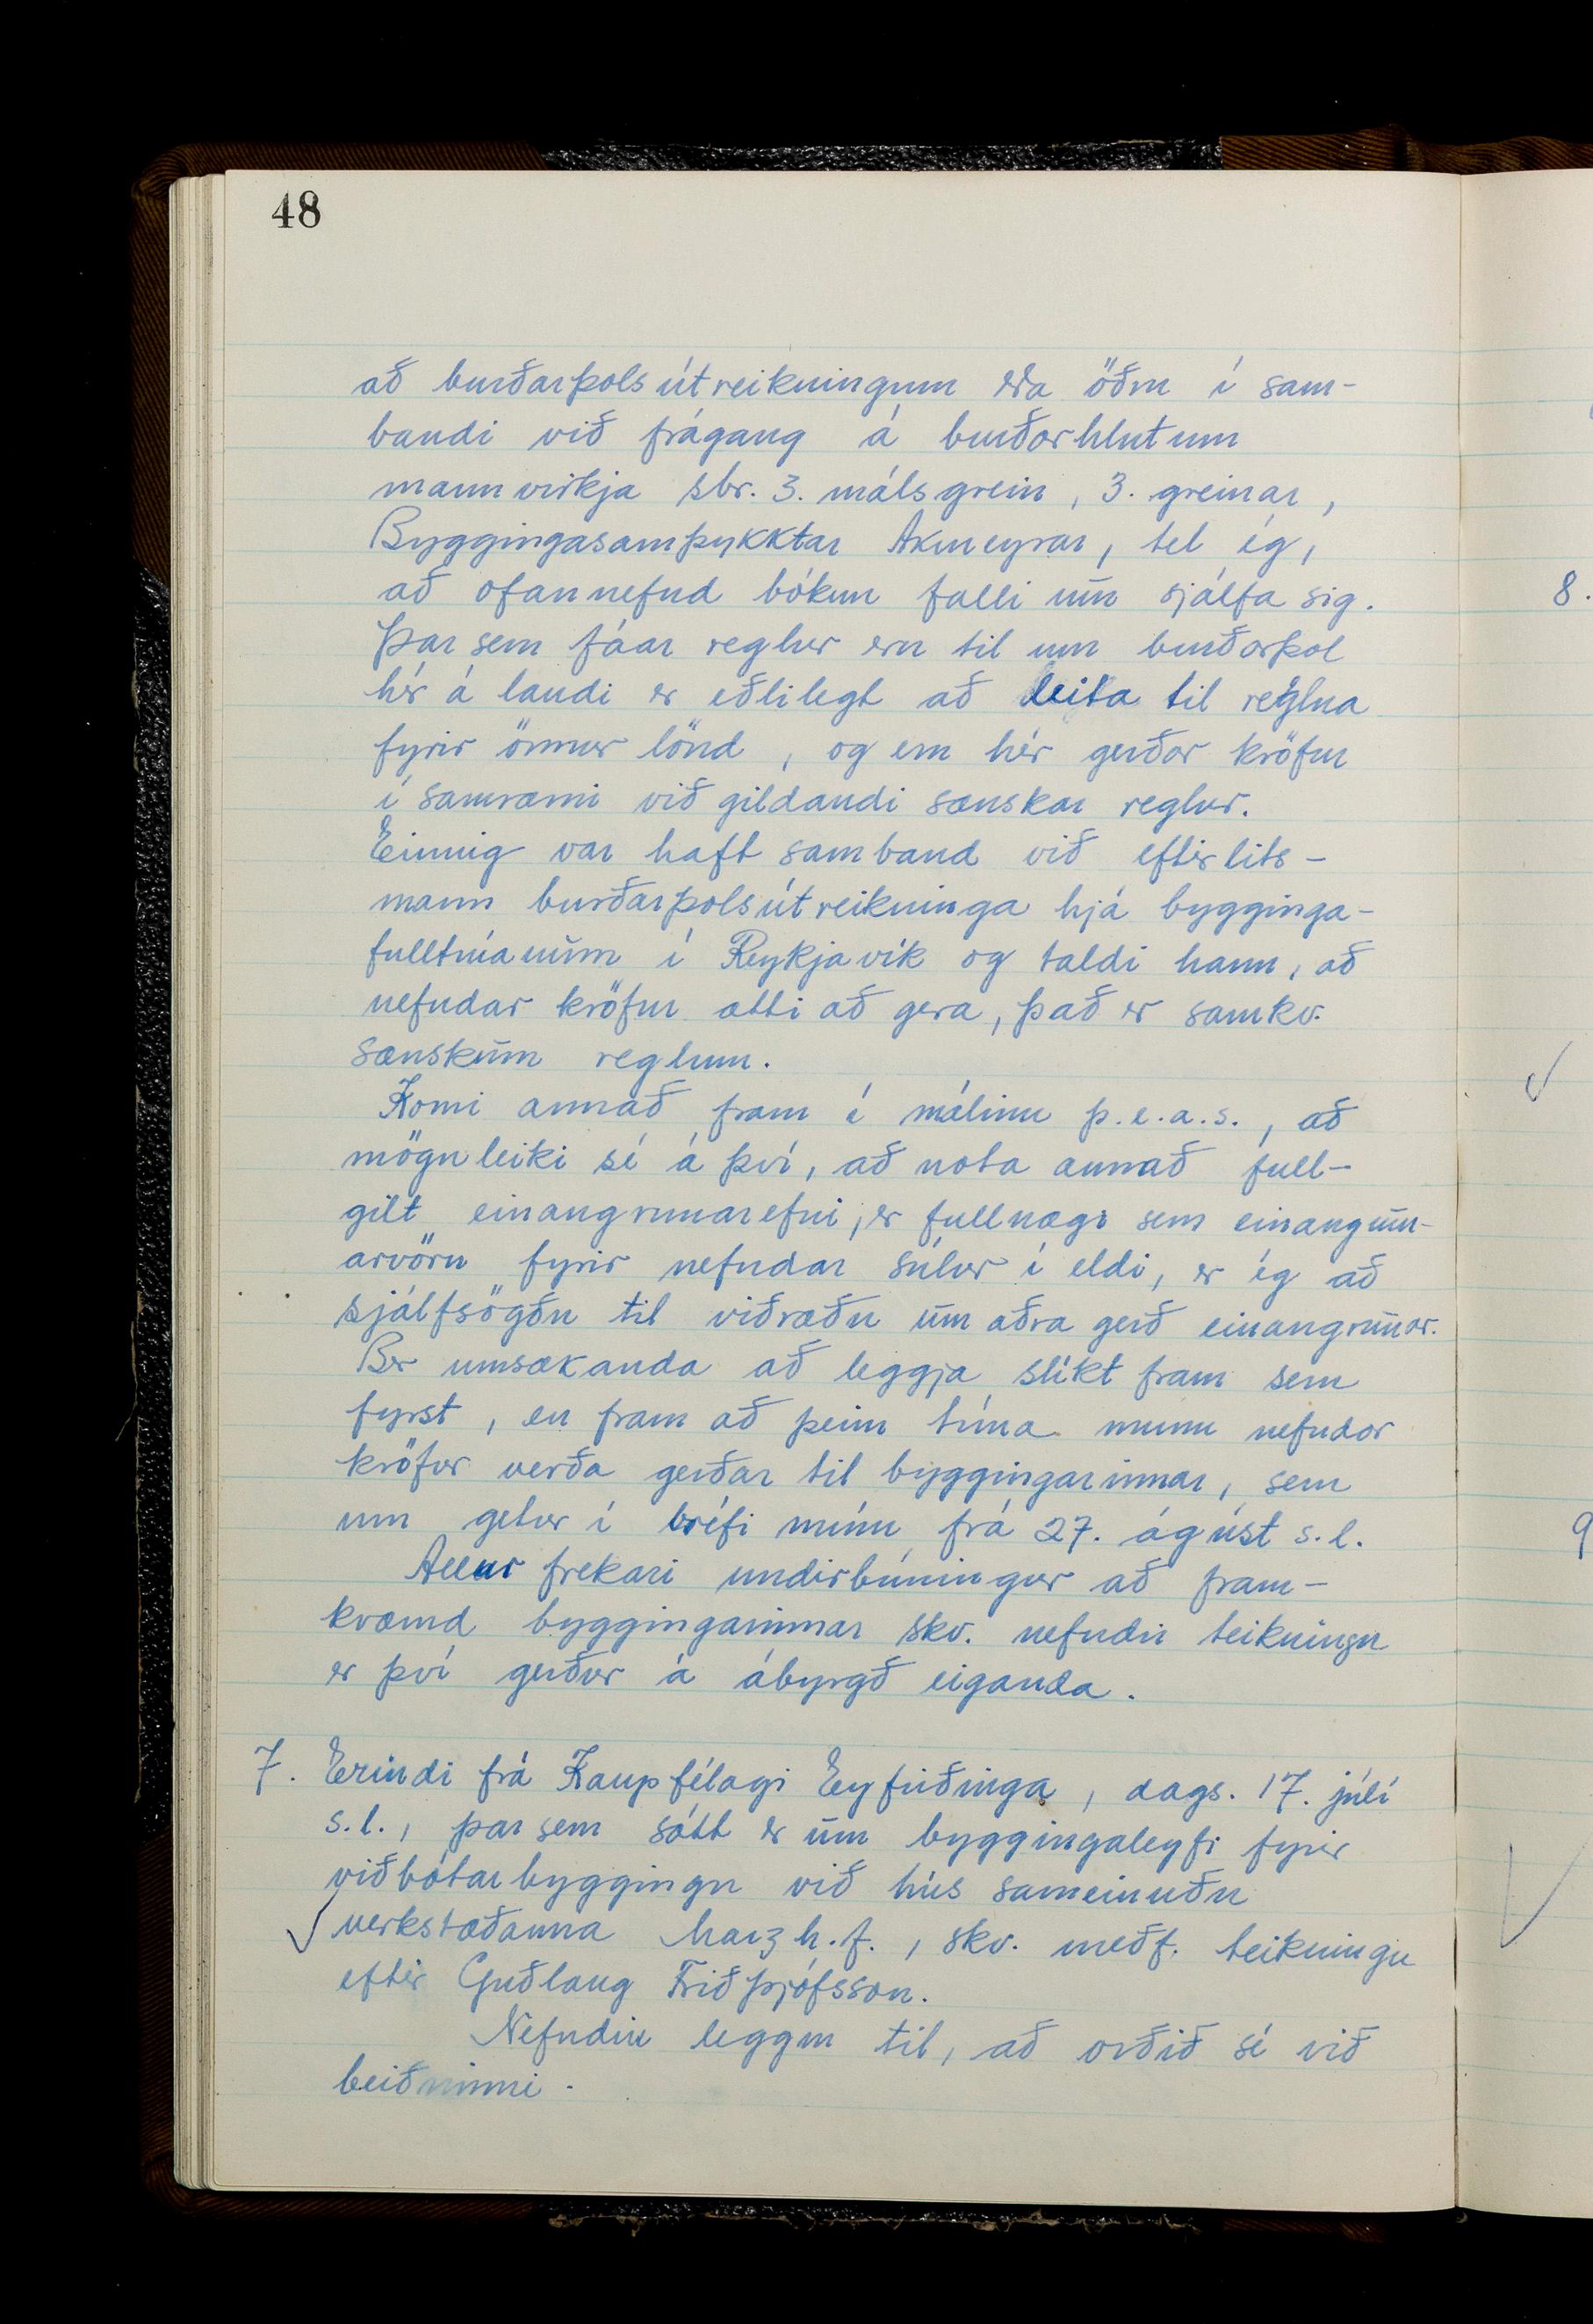 48
að burðarþolsútreikningum eða öðru í sam-
bandi við frágang á burðarhlutum
mannvirkja sbr. 3. málsgrein, 3. greinar,
Byggingasamþykktar Akureyrar, tel ég,
að ofannefnd bókun falli um sjálfa sig.
Þar sem fáar reglur eru til um burðarþol
hér á landi er eðlilegt að leita til reglna
fyrir önnur lönd, og eru hér gerðar kröfur
í samræmi við gildandi sænskar reglur.
Einnig var haft samband við eftirlits-
mann burðarþolsútreikninga hjá bygginga-
fulltrúanum í Reykjavík og taldi hann, að
nefndar kröfur ætti að gera, það er samkv.
sænskum reglum.
Komi annað fram í málinu þ.e.a.s., að
möguleiki sé á því, að nota annað full-
gilt einangrunarefni, er fullnægi sem einangrun-
arvöru fyrir nefndar súlur í eldi, er ég að
sjálfsögðu til viðræðu um aðra gerð einangrunar.
Ber umsækanda að leggja slíkt fram sem
fyrst, en fram að þeim tíma munu nefndar
kröfur verða gerðar til byggingarinnar, sem
um getur í bréfi mínu frá 27. ágúst s.l.
Allur frekari undirbúningur að fram-
kvæmd byggingarinnar skv. nefndri teikningu
er því gerður á ábyrgð eiganda.
7. Erindi frá Kaupfélagi Eyfirðinga, dags. 17. júlí
s.l., þar sem sótt er um byggingaleyfi fyrir
viðbótarbyggingu við hús sameinuðu
verkstæðanna Marz h.f., skv. meðf. teikningu
eftir Guðlaug Friðþjófsson.
Nefndin leggur til, að orðið sé við
beiðninni.
8.
9